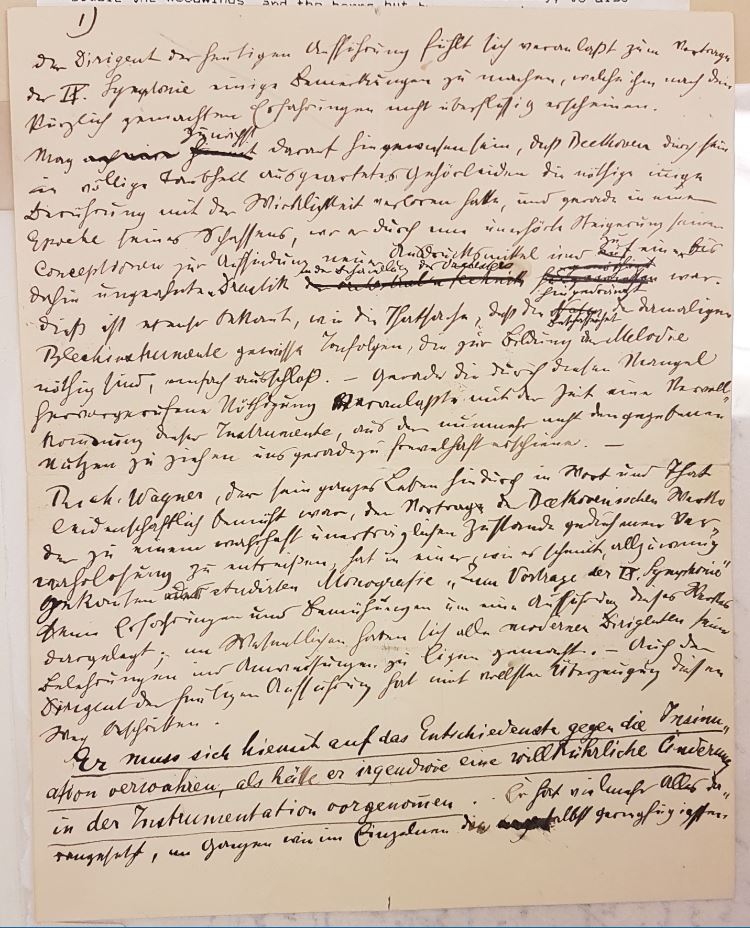 1)
der Dirigent der heutigen Aufführung fühlt sich veranlaßt zum Vortrage
der IX. Symphonie einige Bemerkungen zu machen, welche ihm nach den
kürzlich gemachten Erfahrungen nicht überflüssig erscheinen.
zunächst
Mag darauf hingewiesen sein, daß Beethoven durch sein
in völlige Taubheit ausgeartetes Gehörleiden die nöthige innige
Berührung mit der Wirklichkeit verloren hatte, und gerade in einer
Epoche seines Schaffens, wo er durch eine unerhörte Steigerung seiner
Conceptionen zur Auffindung neuer Ausdrucksmittel und zu einer bis
in der Behandlung des Orchesters
dahin ungeahnten Drastik hingedrängt war.
dieß ist ebenso bekannt, wie die Thatsache, daß die Beschaffenheit der damaligen
Blechinstrumente gewisse Tonfolgen, die zur Bildung der Melodie
nöthig sind, einfach ausschloß. — Gerade die durch diesen Mangel
hervorgerufene Nöthigung veranlaßte mit der Zeit eine Vervoll„
kommnung dieser Instrumente, aus der nunmehr nicht den gegebenen
Nutzen zu ziehen uns geradezu frevelhaft erschiene. —
Rich. Wagner, der sein ganzes Leben hindurch in Wort und That
leidenschaftlich bemüht war, den Vortrag der Beethovenschen Werke
der zu einem wahrhaft unerträglichen Zustande gediehenen Ver„
wahrlosung zu entreißen, hat in einer, wie es scheint allzuwenig
gekannten und studirten Monografie „Zum Vortrage der IX. Symphonie"
seine Erfahrungen und Bemühungen um eine Aufführung dieses Werkes
dargelegt; im Wesentlichen haben sich alle modernen Dirigenten seine
Belehrungen und Anweisungen zu Eigen gemacht. — Auch der
Dirigent der heutigen Aufführung hat mit vollster Überzeugung diesen
Weg beschritten.
Er muss sich hiemit auf das Entschiedenste gegen die Insinu„
ation verwahren, als hätte er irgendwie eine willkührliche Änderung
in der Instrumentation vorgenommen. Er hat vielmehr Alles da„
rangesetzt, im Ganzen wie im Einzelnen den selbst geringfügigsten